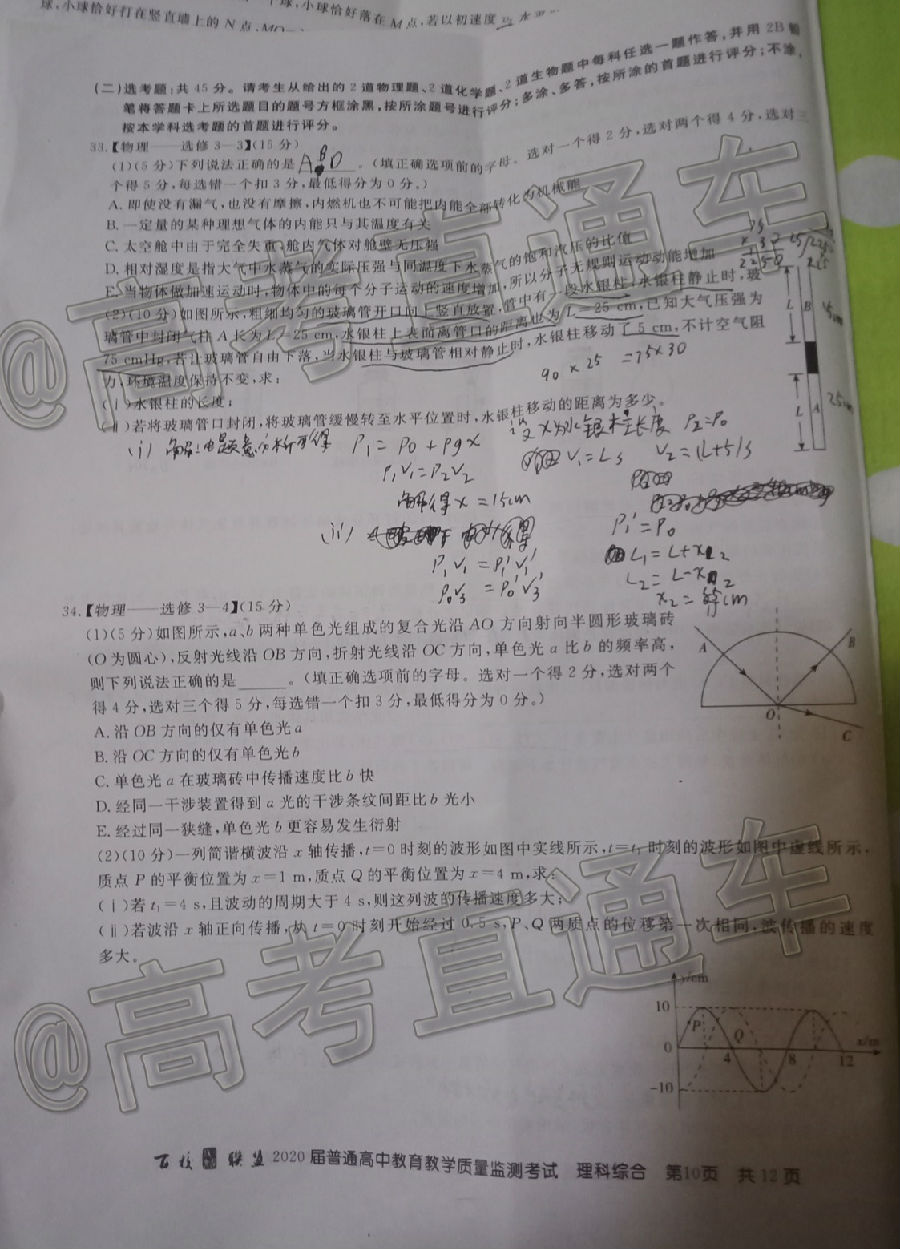 球,小球恰好打在竖直墙上的N点,MO
个球,小球恰好落在M点,若以初速度
(二)选考题:共45分。请考生从给出的2道物理题、2道化学题、2道生物题中每科任选一题作答,并用2B铅
笔将答题卡上所选题目的题号方框涂黑,按所涂题号进行评分;多涂、多答,按所涂的首题进行评分;不涂,
按本学科选考题的首题进行评分。
33.【物理——选修3—3】(15分)
(1)(5分)下列说法正确的是 ABD 。(填正确选项前的字母。选对一个得2分,选对两个得4分,选对三
个得5分,每选错一个扣3分,最低得分为0分。)
A.即使没有漏气,也没有摩擦,内燃机也不可能把内能全部转化为机械能
B.一定量的某种理想气体的内能只与其温度有关
C.太空舱中由于完全失重,舱内气体对舱壁无压强
D.相对湿度是指大气中水蒸气的实际压强与同温度下水蒸气的饱和汽压的比值
E.当物体做加速运动时,物体中的每个分子运动的速度增加,所以分子无规则运动动能增加
(2)(10分)如图所示,粗细均匀的玻璃管开口向上竖直放置,管中有一段水银柱,水银柱静止时,玻
璃管中封闭气柱A长为L=25 cm,水银柱上表面离管口的距离也为L=25 cm,已知大气压强为
75 cmHg,若让玻璃管自由下落,当水银柱与玻璃管相对静止时,水银柱移动了5 cm,不计空气阻
力,环境温度保持不变,求:
90×25 =75×30
(ⅰ)水银柱的长度;
(ⅱ)若将玻璃管口封闭,将玻璃管缓慢转至水平位置时,水银柱移动的距离为多少。
L
B
L
A
25cm
(i) 解:由题意分析可得 P1=P0+ρgx 设x为水银柱长度 P2=P0
P1V1=P2V2 V1=LS V2=(L+5)S
解得x=15cm
(ii)
P1'=P0
P1V1=P1'V1' L1=L+x2
P0V3=P0'V3' L2=L-x2
x2= cm
34.【物理——选修3—4】(15分)
(1)(5分)如图所示,a、b两种单色光组成的复合光沿AO方向射向半圆形玻璃砖
(O为圆心),反射光线沿OB方向,折射光线沿OC方向,单色光a比b的频率高,
则下列说法正确的是______。(填正确选项前的字母。选对一个得2分,选对两个
得4分,选对三个得5分,每选错一个扣3分,最低得分为0分。)
A
B
O
C
A.沿OB方向的仅有单色光a
B.沿OC方向的仅有单色光b
C.单色光a在玻璃砖中传播速度比b快
D.经同一干涉装置得到a光的干涉条纹间距比b光小
E.经过同一狭缝,单色光b更容易发生衍射
(2)(10分)一列简谐横波沿x轴传播,t=0时刻的波形如图中实线所示,t=t1时刻的波形如图中虚线所示,
质点P的平衡位置为x=1 m,质点Q的平衡位置为x=4 m,求:
(ⅰ)若t1=4 s,且波动的周期大于4 s,则这列波的传播速度多大;
(ⅱ)若波沿x轴正向传播,从t=0时刻开始经过0.5 s,P、Q两质点的位移第一次相同,波传播的速度
多大。
y/cm
10
P
Q
x/m
0
4
8
12
-10
@高考直通车
@高考直通车
百校联盟2020届普通高中教育教学质量监测考试 理科综合 第10页 共12页